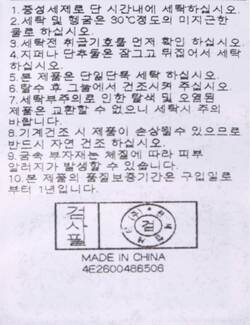 1.중성세제로 단 시간내에 세탁하십시오.
2.세탁 및 헹굼은 30℃정도의 미지근한
물로 하십시오.
3.세탁전 취급기호를 먼저 확인 하십시오.
4.지퍼나 단추롤은 잠그고 뒤집어서 세탁
하십시오.
5.본 제품은 단일단독 세탁 하십시오.
6.탈수 후 그늘에서 건조시켜 주십시오.
7.세탁부주의로 인한 탈색 및 오염된
제품은 교환할 수 없으니 세탁시 주의
바랍니다.
8.기계건조 시 제품이 손상될수 있으므로
반드시 자연 건조 하십시오.
9.금속 부자재는 체질에 따라 피부
알러지가 발생할 수 있습니다.
10.본 제품의 품질보증기간은 구입일로
부터 1년입니다.
검사필
(주)
검
MADE IN CHINA
4E2600486506